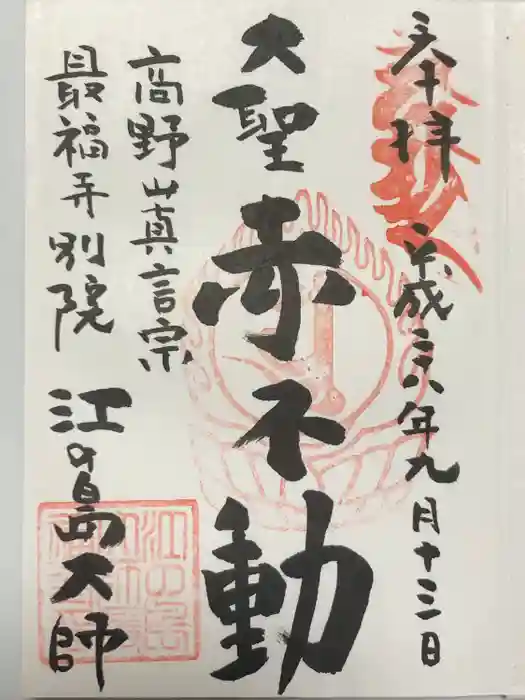 奉拝 平成二八年九月十三日
大聖赤不動
高野山真言宗
最福寺別院 江の島大師